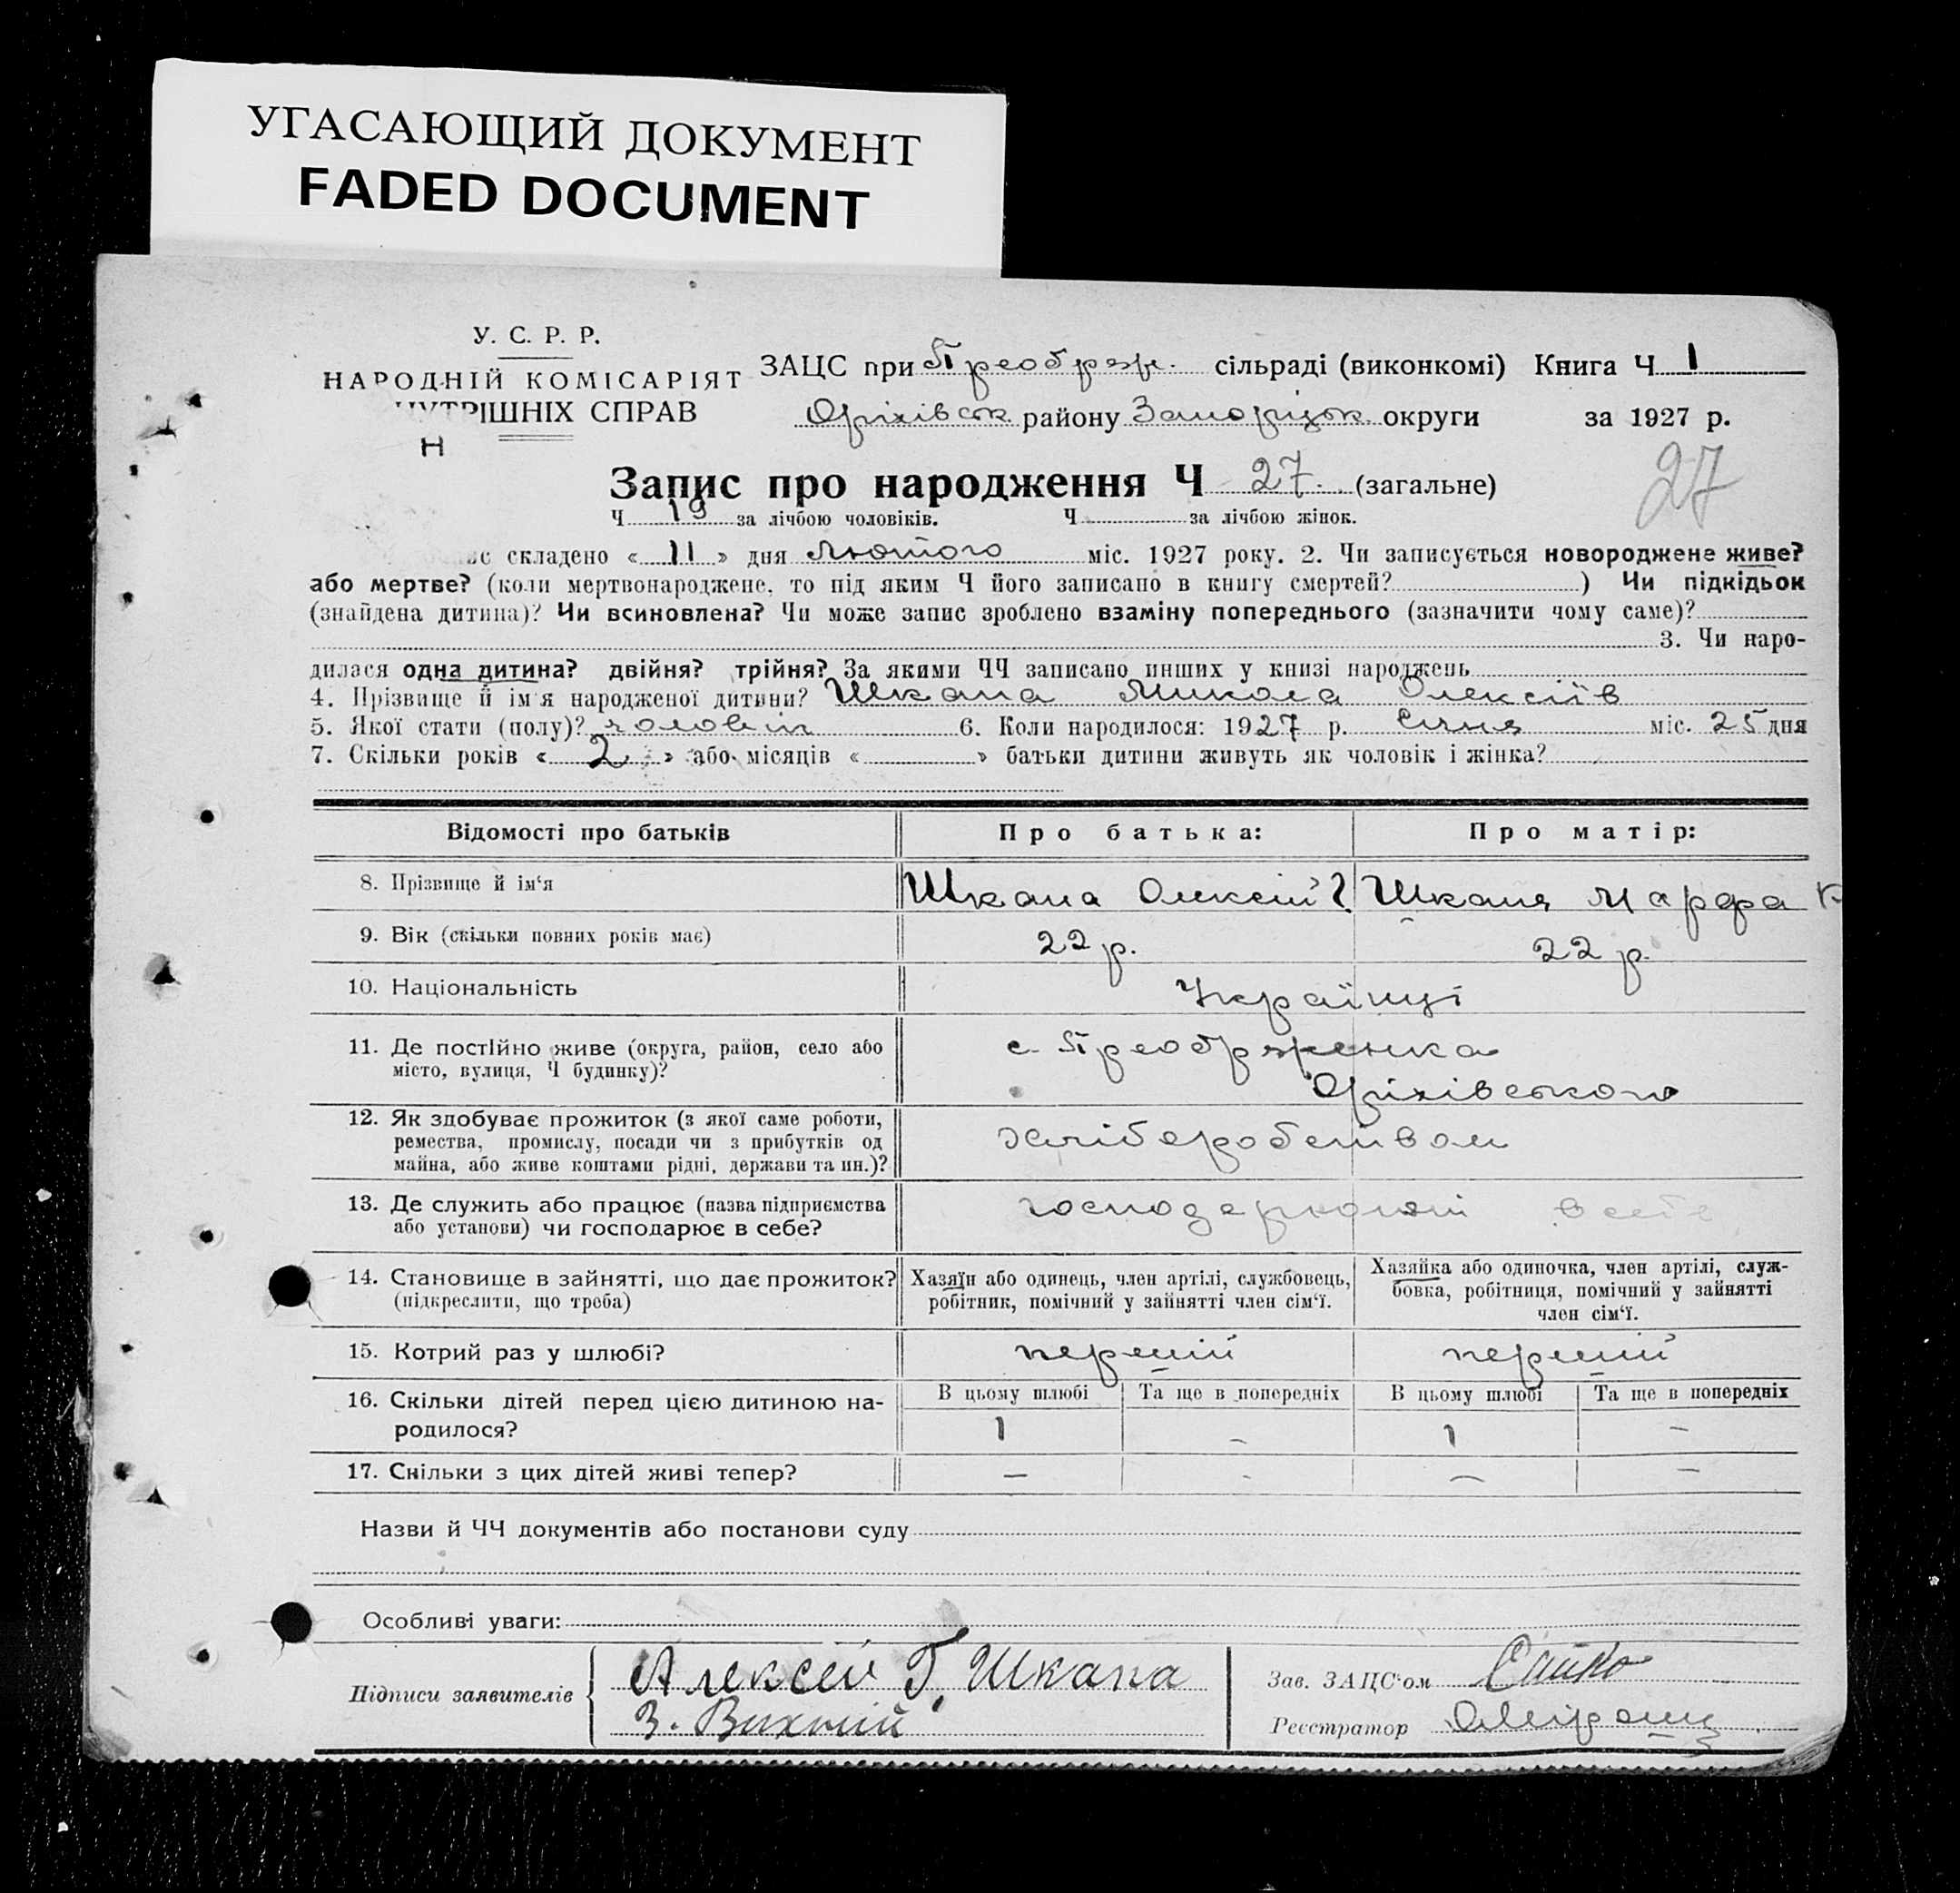 УГАСАЮЩИЙ ДОКУМЕНТ
FADED DOCUMENT
У. С. Р. Р.
НАРОДНІЙ КОМІСАРІЯТ
НУТРІШНІХ СПРАВ
Н
ЗАЦС при Преображ. сільраді (виконкомі) Книга Ч 1
Оріхівськ району Запоріжськ. округи за 1927 р.
Запис про народження Ч 27. (загальне)
27
Ч 19 за лічбою чоловіків. Ч за лічбою жінок.
с складено « 11 » дня Лютого міс. 1927 року. 2. Чи записується новороджене живе?
або мертве? (коли мертвонароджене, то під яким Ч його записано в книгу смертей? ) Чи підкідьок
(знайдена дитина)? Чи всиновлена? Чи може запис зроблено взаміну попереднього (зазначити чому саме)?
3. Чи наро-
дилася одна дитина? двійня? трійня? За якими ЧЧ записано инших у книзі народжень
4. Прізвище й ім'я народженої дитини? Шкапа Микола Олексіїв
5. Якої стати (полу)? чоловік 6. Коли народилося: 1927 р. Січня міс. 25 дня
7. Скільки років « 2 » або місяців « » батьки дитини живуть як чоловік і жінка?
Відомості про батьків Про батька: Про матір:
8. Прізвище й ім‘я Шкапа Олексій Г. Шкапа Марфа К
9. Вік (скільки повних років має) 22 р. 22 р.
10. Національність Українці
11. Де постійно живе (округа, район, село або с. Преображенка
місто, вулиця, Ч будинку)? Оріхівського
12. Як здобуває прожиток (з якої саме роботи, хліборобством
ремества, промислу, посади чи з прибутків од
майна, або живе коштами рідні, держави та ин.)?
13. Де служить або працює (назва підприємства господарюють в себе
або установи) чи господарює в себе?
14. Становище в зайнятті, що дає прожиток? Хазяїн або одинець, член артілі, службовець, Хазяйка або одиночка, член артілі, служ-
(підкреслити, що треба) робітник, помічний у зайнятті член сім‘ї. бовка, робітниця, помічний у зайнятті
член сім‘ї.
15. Котрий раз у шлюбі? перший перший
16. Скільки дітей перед цією дитиною на- В цьому шлюбі Та ще в попередніх В цьому шлюбі Та ще в попередніх
родилося? 1 - 1 -
17. Скільки з цих дітей живі тепер? - - - -
Назви й ЧЧ документів або постанови суду
Особливі уваги:
Підписи заявителів Алексей Г. Шкапа
З.
Зав. ЗАЦС‘ом
Реєстратор